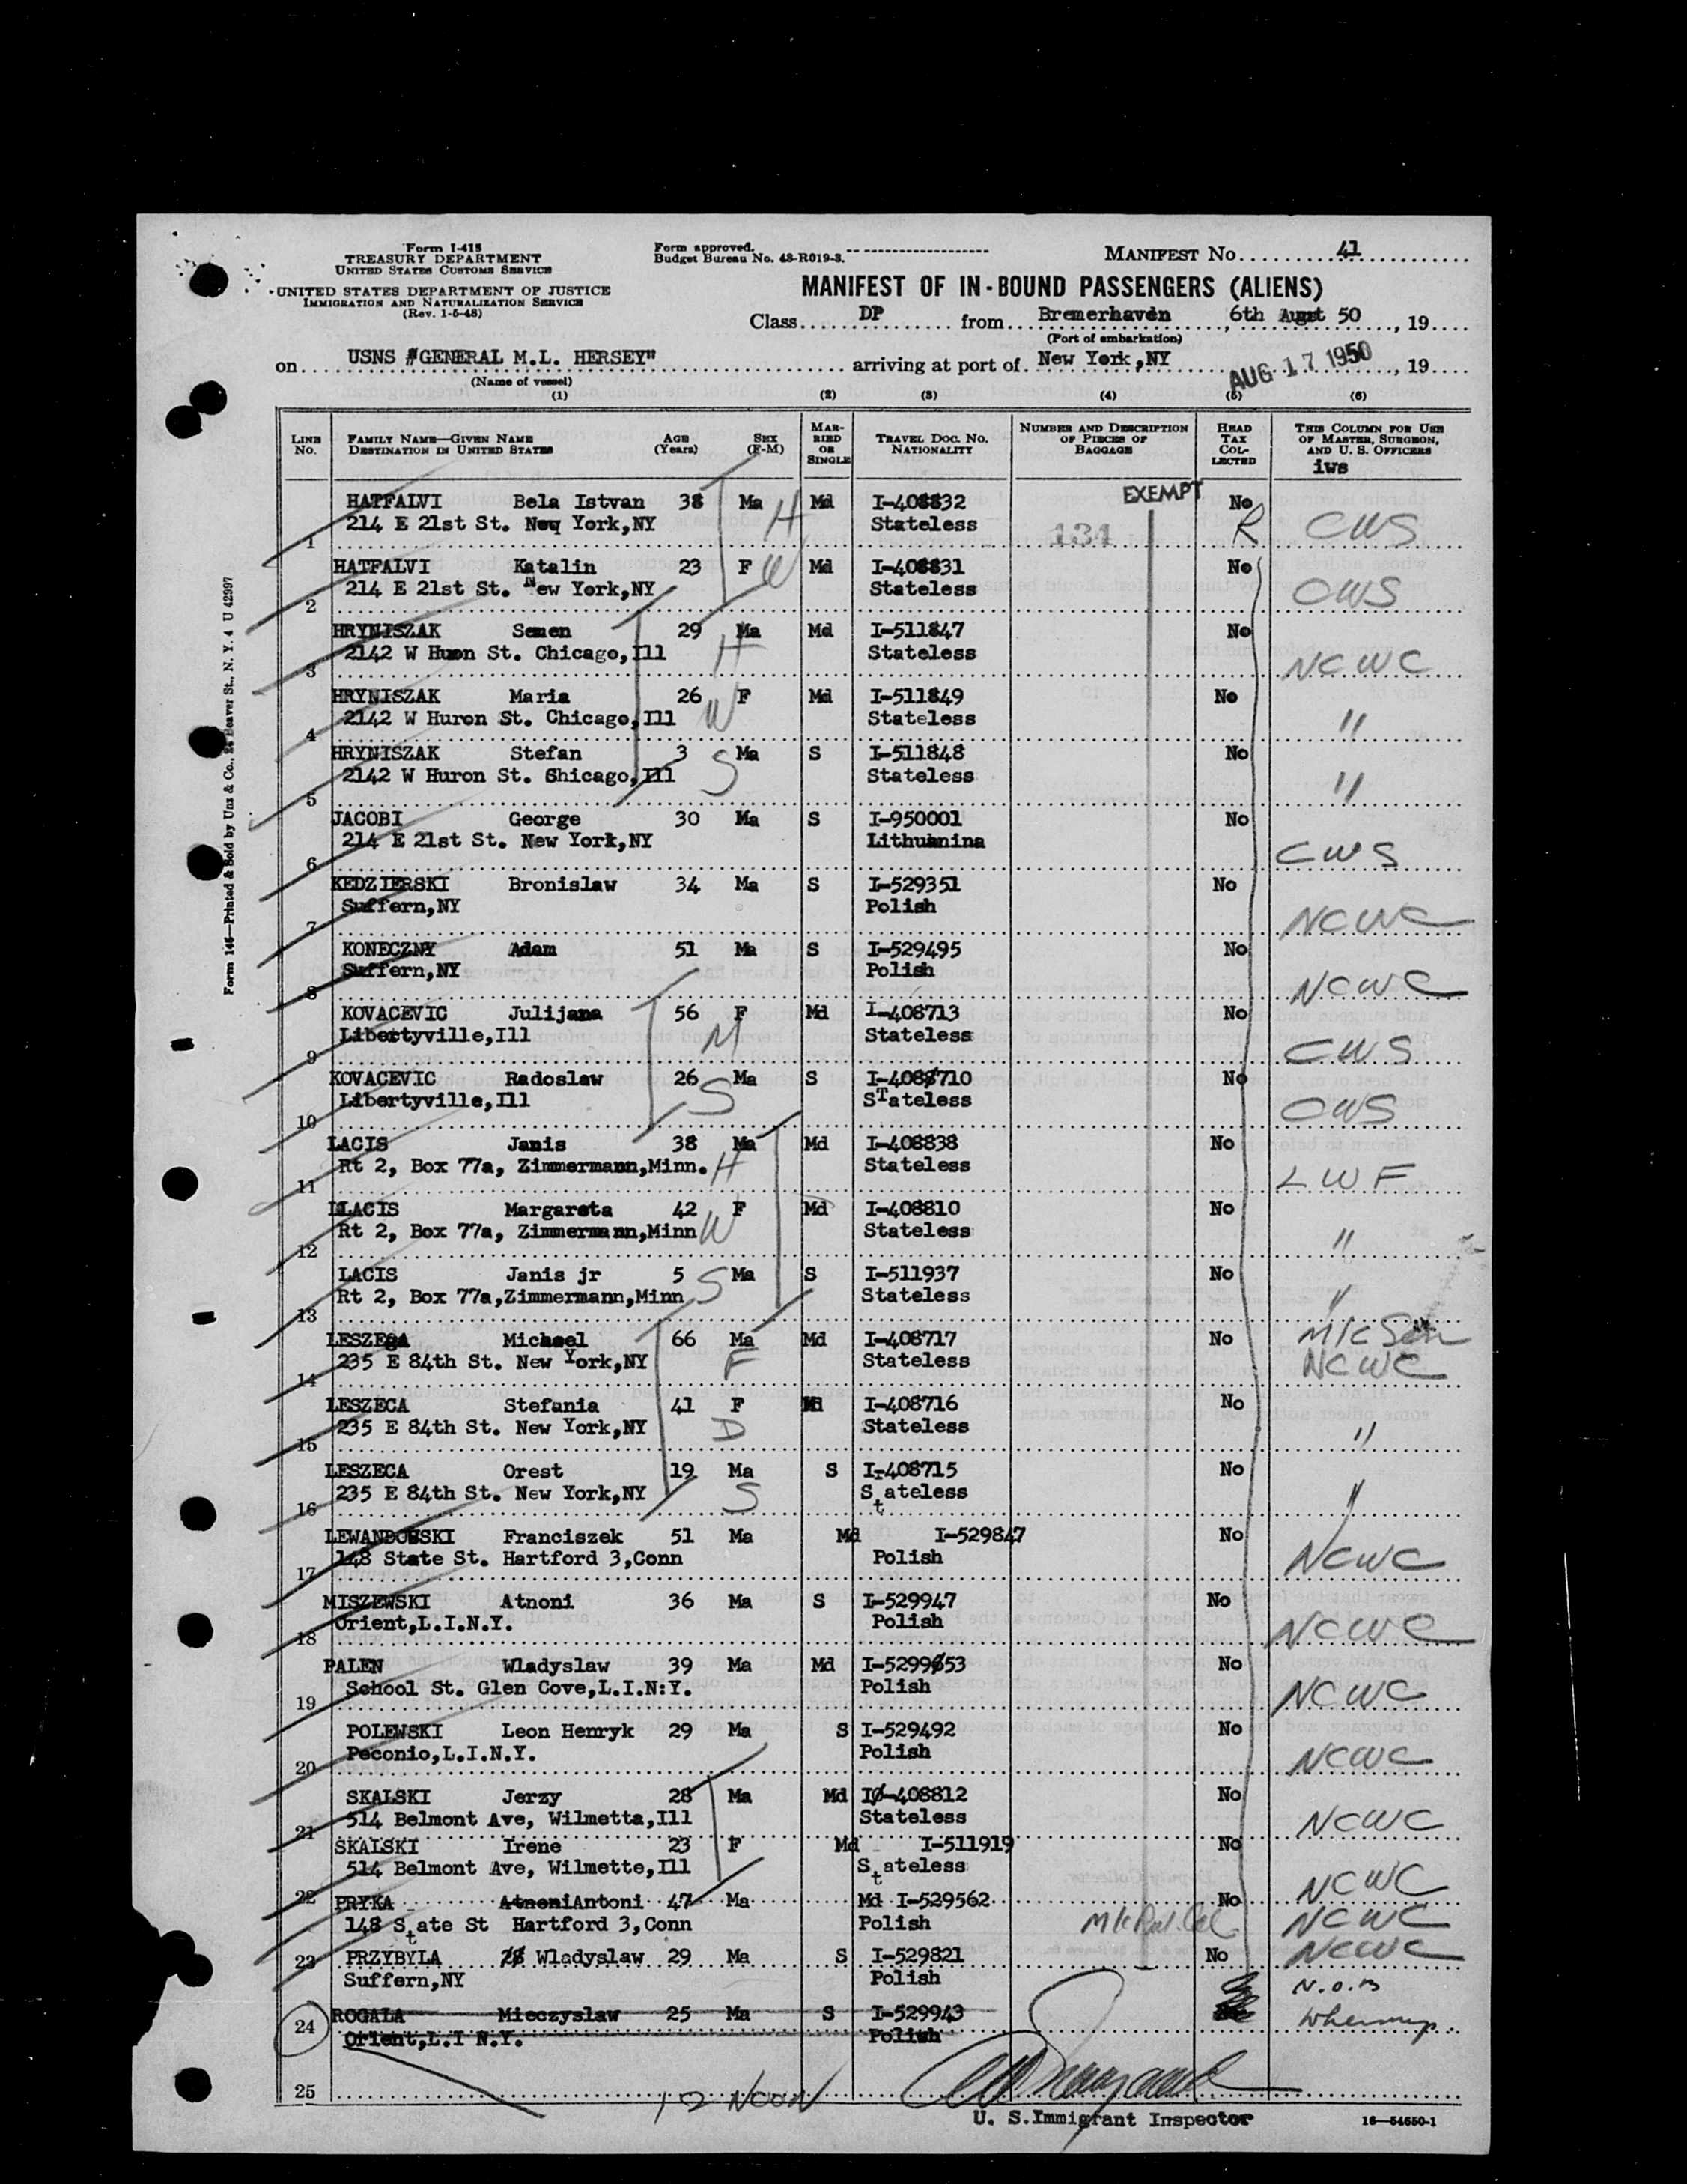 Form I-415
TREASURY DEPARTMENT
UNITED STATES CUSTOMS SERVICE
UNITED STATES DEPARTMENT OF JUSTICE
IMMIGRATION AND NATURALIZATION SERVICE
(Rev. 1-5-48)
Form approved.
Budget Bureau No. 43-R019-3.
MANIFEST No. 41
MANIFEST OF IN-BOUND PASSENGERS (ALIENS)
Class DP from Bremerhaven, 6th August 50, 19
(Port of embarkation)
on USNS "GENERAL M.L. HERSEY" arriving at port of New York,NY AUG 17 1950, 19
(Name of vessel)
(1) (2) (3) (4) (5) (6)
LINE No. FAMILY NAME—GIVEN NAME DESTINATION IN UNITED STATES AGE (Years) SEX (F-M) MARRIED OR SINGLE TRAVEL DOC. NO. NATIONALITY NUMBER AND DESCRIPTION OF PIECES OF BAGGAGE HEAD TAX COLLECTED THIS COLUMN FOR USE OF MASTER, SURGEON, AND U. S. OFFICERS
iws
EXEMPT
HATFALVI Bela Istvan 38 Ma Md I-408832 No
1 214 E 21st St. Neq York,NY H Stateless 134 R CWS
HATFALVI Katalin 23 F W Md I-408831 No
2 214 E 21st St. New York,NY Stateless CWS
HRYNISZAK Semen 29 Ma Md I-511847 No
3 2142 W Huon St. Chicago,Ill H Stateless NCWC
HRYNISZAK Maria 26 F Md I-511849 No
4 2142 W Huron St. Chicago,Ill W Stateless "
HRYNISZAK Stefan 3 Ma S I-511848 No
5 2142 W Huron St. Shicago,Ill S Stateless "
JACOBI George 30 Ma S I-950001 No
6 214 E 21st St. New York,NY Lithuanina CWS
KEDZIERSKI Bronislaw 34 Ma S I-529351 No
7 Suffern,NY Polish NCWC
KONECZNY Adam 51 Ma S I-529495 No
8 Suffern,NY Polish NCWC
KOVACEVIC Julijana 56 F Md I-408713 No
9 Libertyville,Ill M Stateless CWS
KOVACEVIC Radoslaw 26 Ma S I-408710 No
10 Libertyville,Ill S Stateless CWS
LACIS Janis 38 Ma Md I-408838 No
11 Rt 2, Box 77a, Zimmermann,Minn. H Stateless LWF
LACIS Margareta 42 F Md I-408810 No
12 Rt 2, Box 77a, Zimmermann,Minn W Stateless "
LACIS Janis jr 5 S Ma S I-511937 No
13 Rt 2, Box 77a,Zimmermann,Minn Stateless "
LESZEGA Michael 66 Ma Md I-408717 No
14 235 E 84th St. New York,NY F Stateless NCWC
LESZECA Stefania 41 F Md I-408716 No
15 235 E 84th St. New York,NY D Stateless "
LESZECA Orest 19 Ma S I-408715 No
16 235 E 84th St. New York,NY S Stateless "
LEWANDOWSKI Franciszek 51 Ma Md I-529847 No
17 148 State St. Hartford 3,Conn Polish NCWC
MISZEWSKI Atnoni 36 Ma S I-529947 No
18 Orient,L.I.N.Y. Polish NCWC
PALEN Wladyslaw 39 Ma Md I-529953 No
19 School St. Glen Cove,L.I.N:Y. Polish NCWC
POLEWSKI Leon Henryk 29 Ma S I-529492 No
20 Peconio,L.I.N.Y. Polish NCWC
SKALSKI Jerzy 28 Ma Md I-408812 No
21 514 Belmont Ave, Wilmetta,Ill Stateless NCWC
SKALSKI Irene 23 F Md I-511919 No
514 Belmont Ave, Wilmette,Ill Stateless NCWC
22 PRYKA Atnoni Antoni 47 Ma Md I-529562 No
148 State St Hartford 3,Conn Polish NCWC
23 PRZYBYLA Wladyslaw 29 Ma S I-529821 No NCWC
Suffern,NY Polish N.O.B
24 ROGALA Mieczyslaw 25 Ma S I-529943
Orient,L.I N.Y. Polish
25
12 NOON
U. S.Immigrant Inspector
16—54650-1
Form 145—Printed & Sold by Unz & Co., 24 Beaver St., N. Y. 4 U 42997